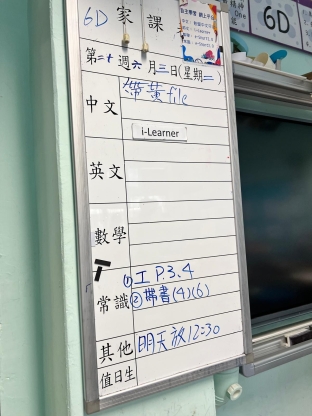 6D 家課
第二十週六月三日(星期二)
中文 帶黃file
i-Learner
英文
數學
(1)工 P.3.4
常識 (2)帶書(4)(6)
其他 明天放12:30
值日生
6D